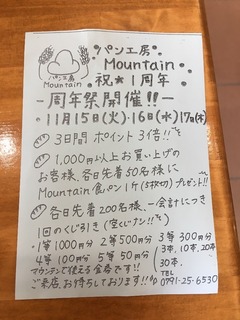 パン工房
Mountain
パン工房
Mountain
祝★1周年
-周年祭開催!!-
11月15日(火)・16日(水)17日(木)
3日間 ポイント3倍!!
1,000円以上お買い上げの
お客様、各日先着50名様に
Mountain食パン1ケ(5枚切)プレゼント!!
各日先着200名様、一会計につき
1回のくじ引き(空くじナシ!!)
・1等1000円分 2等500円分 3等300円分
4等100円分 5等50円分
3本,10本,20本
30本.
マウンテンで使える金券です!!
ご来店、お待ちしております!!
TEL
0791-25-6530